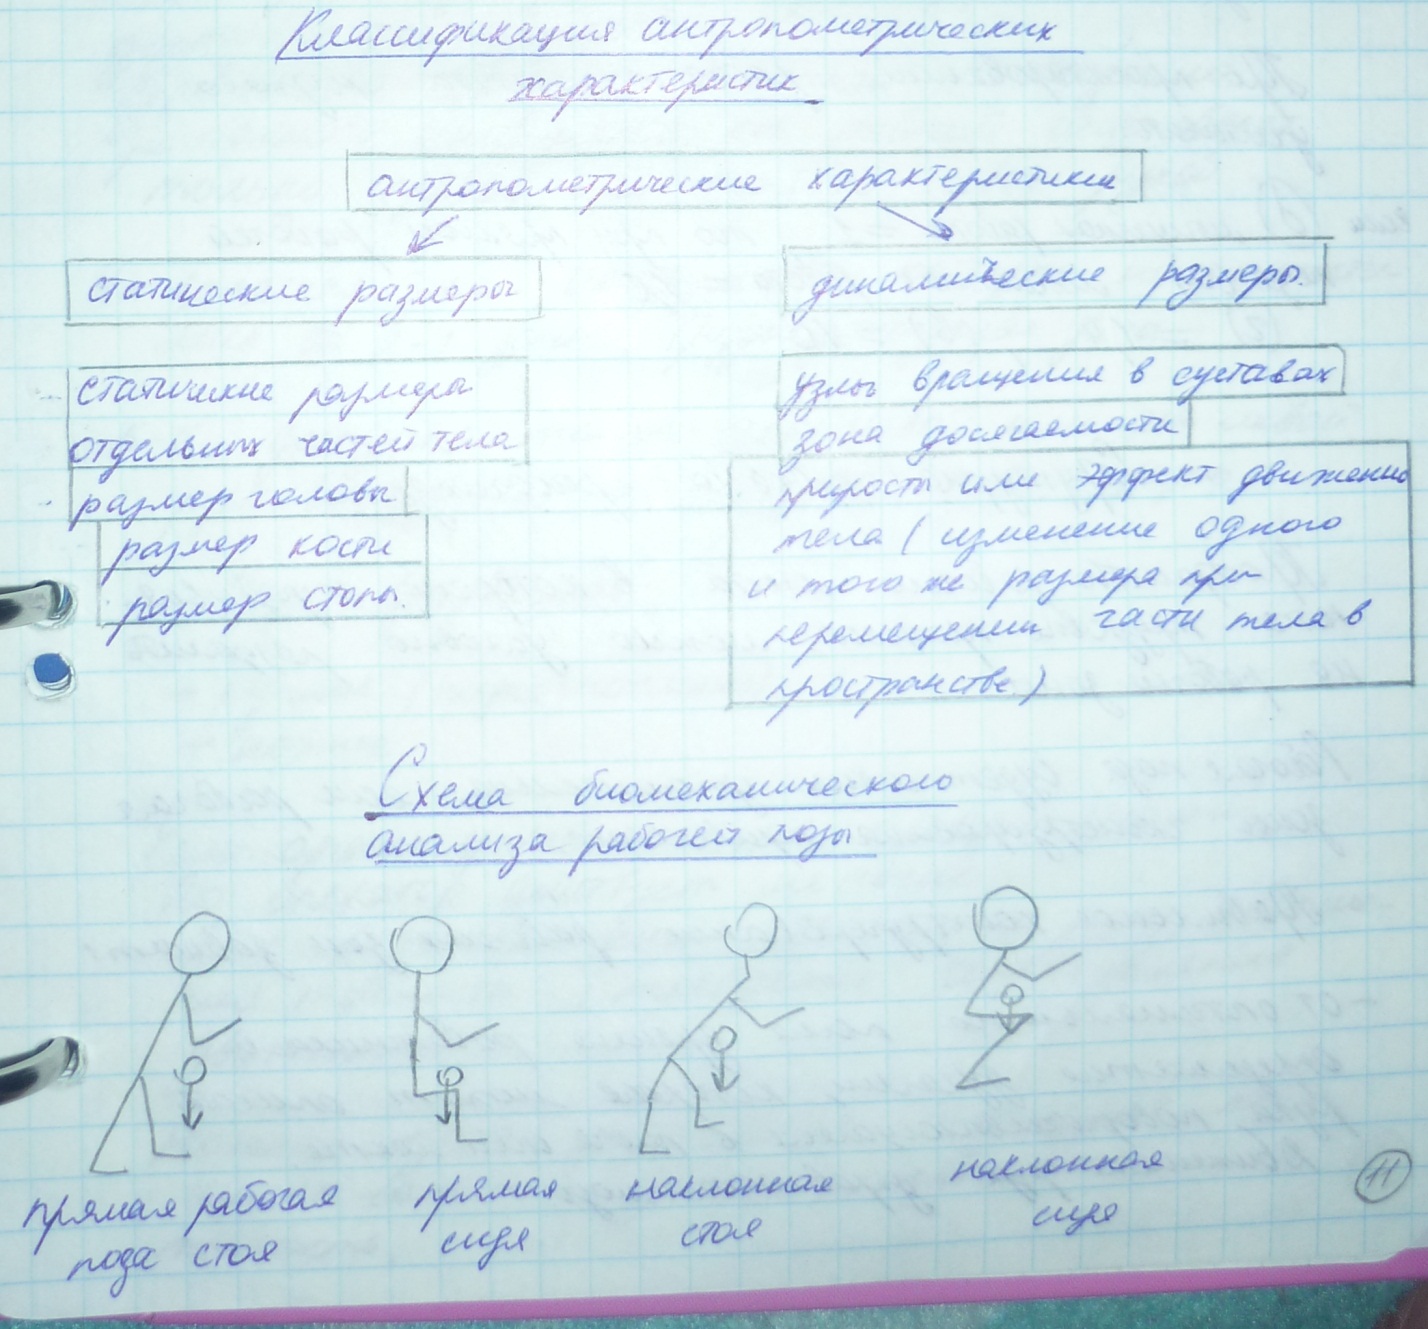 Классификация антропометрических
характеристик
антропометрические характеристики
статические размеры
динамические размеры.
статические размеры
отдельных частей тела
размер головы
размер кости
размер стопы.
узлы вращения в суставах
зона досягаемости
приросты или эффект движения
тела (изменение одного
и того же размера при
перемещении части тела в
пространстве)
Схема биомеханического
анализа рабочей позы
прямая рабочая
поза стоя
прямая
сидя
наклонная
стоя
наклонная
сидя
11